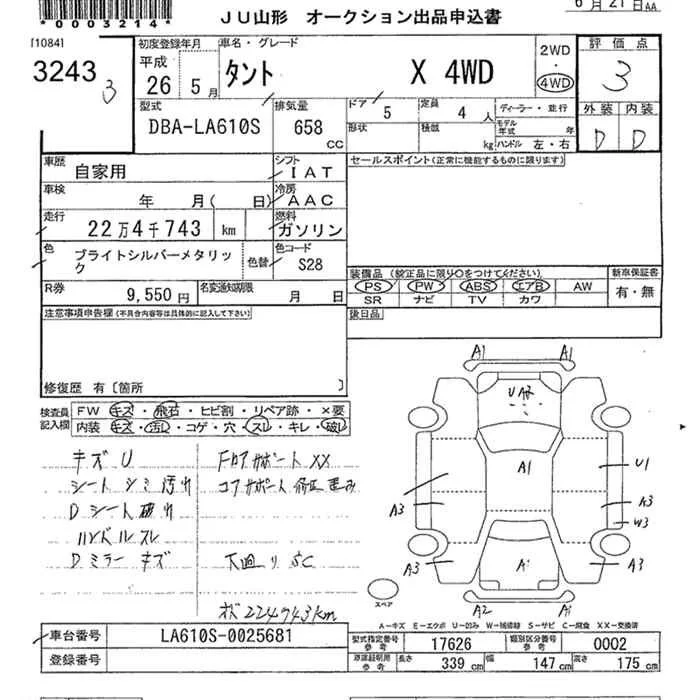 *0003214*
JU山形 オークション出品申込書
6月21日AA
[1084]
3243
3
初度登録年月
平成
26 5月
車名・グレード
タント X 4WD
2WD
4WD
評価点
3
外装 内装
D D
型式
DBA-LA610S
排気量
658
CC
ドア
5
定員
4人
形状
積載
kg
ディーラー・並行
モデル年式 年
ハンドル 左・右
車歴
自家用
シフト
IAT
車検
年 月( 日)
冷房
AAC
走行
22万4千743 km
燃料
ガソリン
色
ブライトシルバーメタリック
色替
色コード
S28
R券
9,550円
名変通知期限
月 日
セールスポイント(正常に機能するものに限ります)
装備品 (純正品に限り○をつけてください)
PS PW ABS エアB AW
SR ナビ TV カワ
新車保証書
有・無
後日品
注意事項申告欄(不具合内容等は具体的に記入して下さい)
修復歴 有〔箇所 〕
検査員記入欄
FW キズ・飛石・ヒビ割・リペア跡・×要
内装 キズ・汚れ・コゲ・穴・スレ・キレ・破れ
キズ U
シート シミ 汚れ
D シート 破れ
ハンドル スレ
D ミラー キズ
Fロアサポート XX
コアサポート 修正 歪み
下廻り SC
オド 224743km
A1 A1
UA2
A1
U1
A3
A3
W3
A3 A3
A1
A2 A1
スペア
A-キズ E-エクボ U-凹み W-補修跡 S-サビ C-腐食 XX-交換済
車台番号
LA610S-0025681
登録番号
型式指定番号
参考
17626
類別区分番号
参考
0002
車庫証明用
参考
長さ 339cm 幅 147cm 高さ 175cm